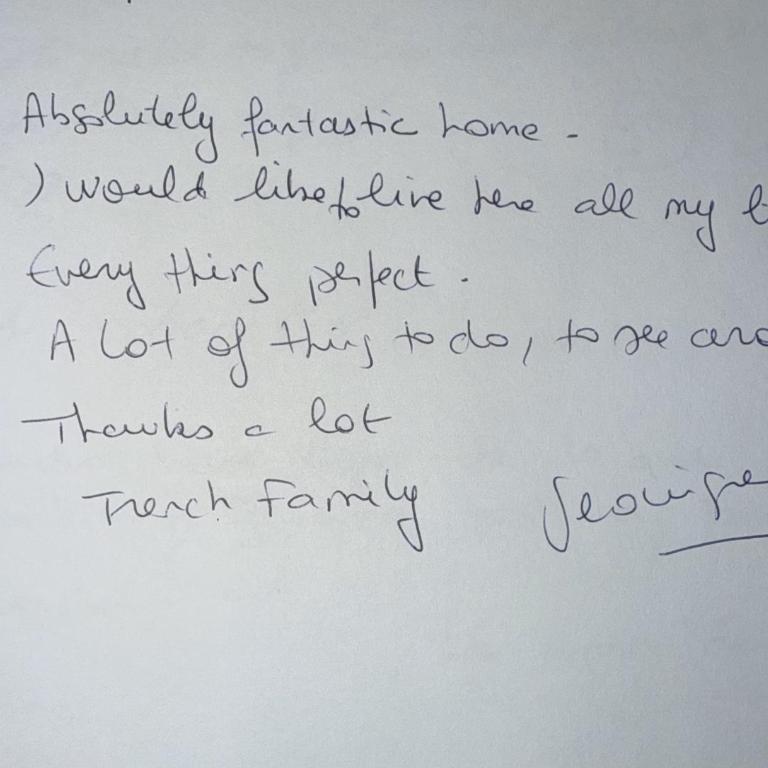 Absolutely fantastic home.
I would like to live here all my
Every thing perfect.
A lot of thing to do, to see
Thanks a lot
French Family